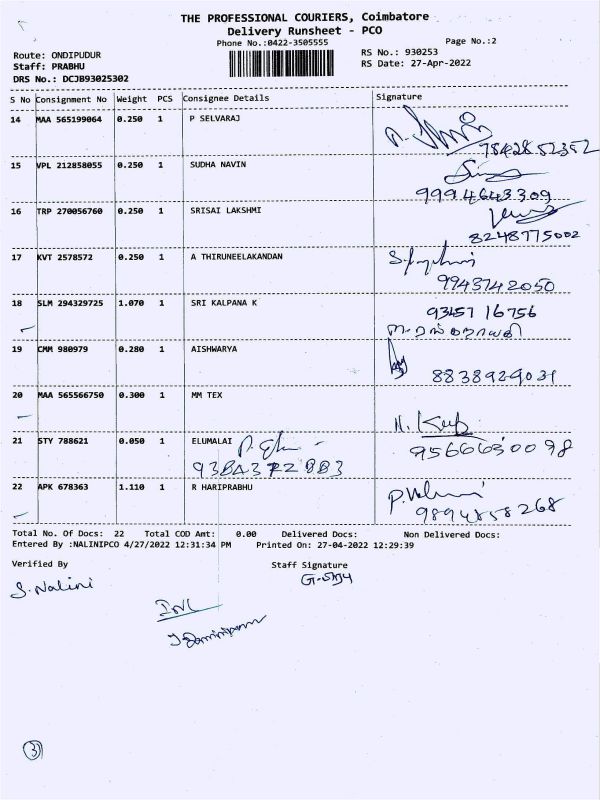 THE PROFESSIONAL COURIERS, Coimbatore
Delivery Runsheet - PCO
Phone No.:0422-3505555
Page No.:2
Route: ONDIPUDUR
RS No.: 930253
Staff: PRABHU
RS Date: 27-Apr-2022
DRS No.: DCJB93025302
S No Consignment No Weight PCS Consignee Details Signature
14 MAA 565199064 0.250 1 P SELVARAJ
7842852352
15 VPL 212858055 0.250 1 SUDHA NAVIN
9994643309
16 TRP 270056760 0.250 1 SRISAI LAKSHMI
8248775002
17 KVT 2578572 0.250 1 A THIRUNEELAKANDAN
9943742050
18 SLM 294329725 1.070 1 SRI KALPANA K
93457 16756
19 CMM 980979 0.280 1 AISHWARYA
8838929031
20 MAA 565566750 0.300 1 MM TEX
21 STY 788621 0.050 1 ELUMALAI
9566630098
22 APK 678363 1.110 1 R HARIPRABHU
9894858268
Total No. Of Docs: 22 Total COD Amt: 0.00 Delivered Docs: Non Delivered Docs:
Entered By :NALINIPCO 4/27/2022 12:31:34 PM Printed On: 27-04-2022 12:29:39
Verified By Staff Signature
S. Nalini
3